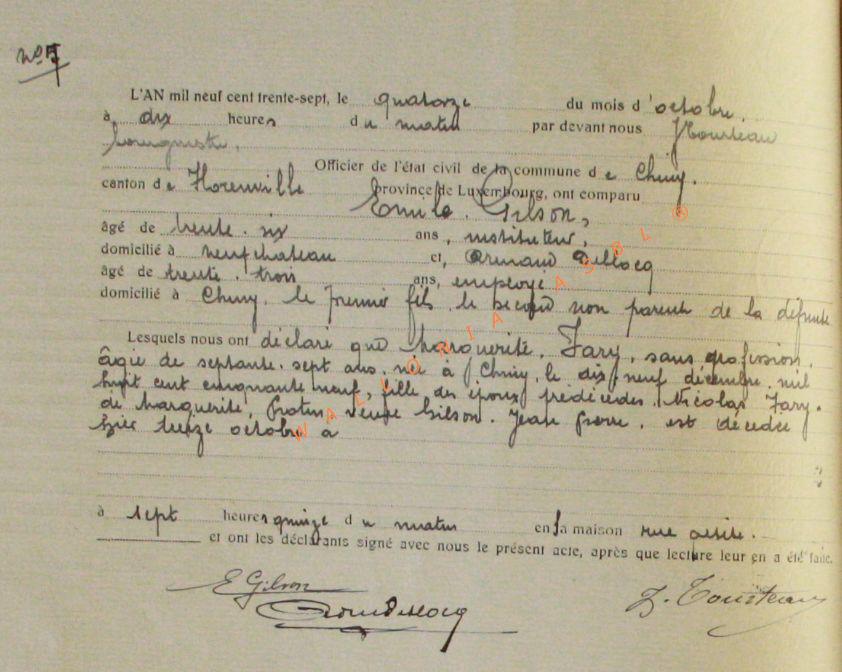 N° 7
L'AN mil neuf cent trente-sept, le quatorze du mois d'octobre.
à dix heures du matin par devant nous
bourgmestre,
Officier de l'état civil de la commune de Chiny.
canton de Florenville province de Luxembourg, ont comparu
Emile Gilson,
âgé de trente-six ans, instituteur,
domicilié à Neufchateau et, Armand Dellocq
âgé de trente-trois ans, employé
domicilié à Chiny, le premier fils, le second non parent de la défunte
Lesquels nous ont déclaré que Marguerite, Fary, sans profession,
âgée de septante-sept ans, née à Chiny, le dix neuf décembre mil
huit cent cinquante neuf, fille des époux prédécédés Nicolas Fary.
de Marguerite, veuve Gilson. Jean Pierre, est décédée
hier treize octobre à
à sept heures quinze du matin en sa maison rue
et ont les déclarants signé avec nous le présent acte, après que lecture leur en a été faite.
E Gilson
WALLONIA ASBL ®